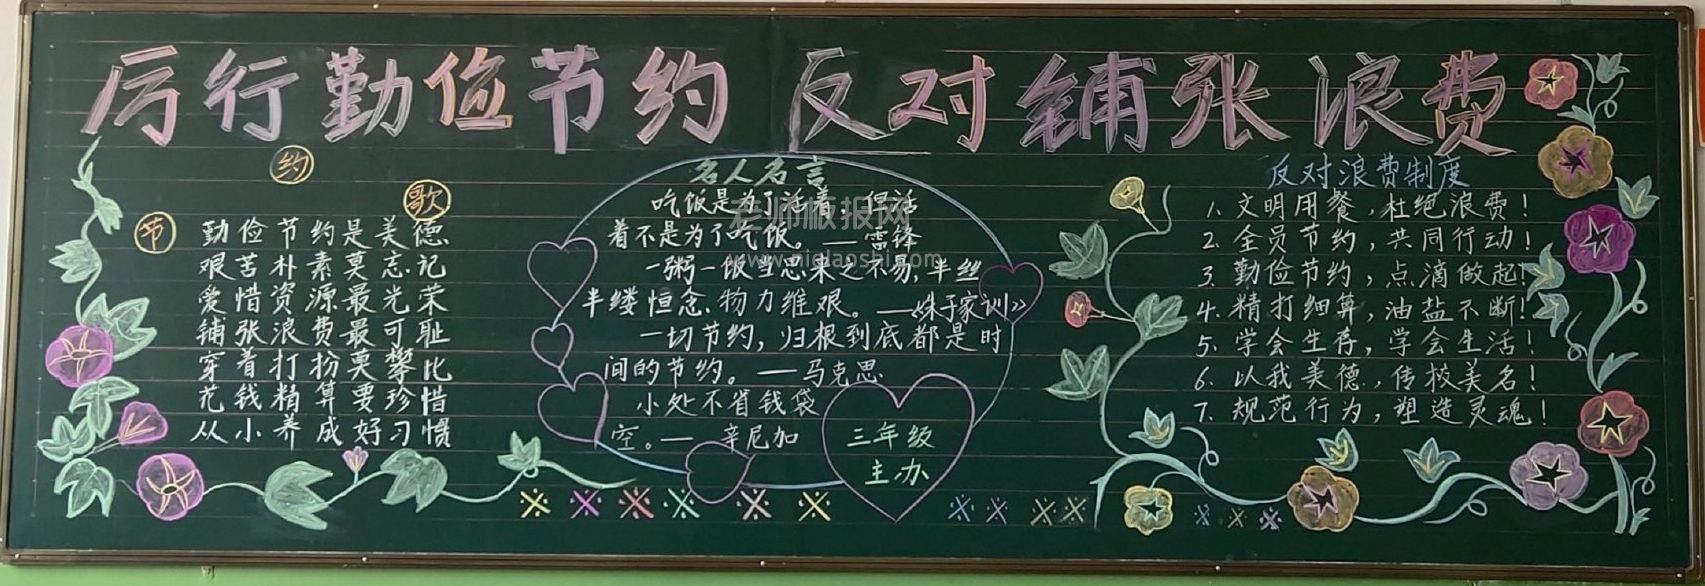 厉行勤俭节约 反对铺张浪费
节约歌
勤俭节约是美德
艰苦朴素莫忘记
爱惜资源最光荣
铺张浪费最可耻
穿着打扮莫攀比
花钱精算要珍惜
从小养成好习惯
名人名言
吃饭是为了活着，但活
着不是为了吃饭。——雷锋
一粥一饭当思来之不易，半丝
半缕恒念物力维艰。——《朱子家训》
一切节约，归根到底都是时
间的节约。——马克思
小处不省钱袋
空。——辛尼加
三年级
主办
反对浪费制度
1. 文明用餐，杜绝浪费！
2. 全员节约，共同行动！
3. 勤俭节约，点滴做起！
4. 精打细算，油盐不断！
5. 学会生存，学会生活！
6. 以我美德，传校美名！
7. 规范行为，塑造灵魂！
老师板报网